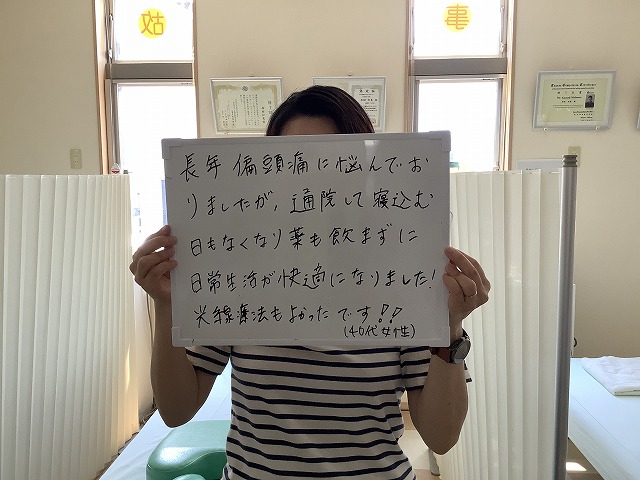 故
事
長年偏頭痛に悩んでお
りましたが、通院して寝込む
日もなくなり薬も飲まずに
日常生活が快適になりました!
光線療法もよかったです!!
(40代女性)